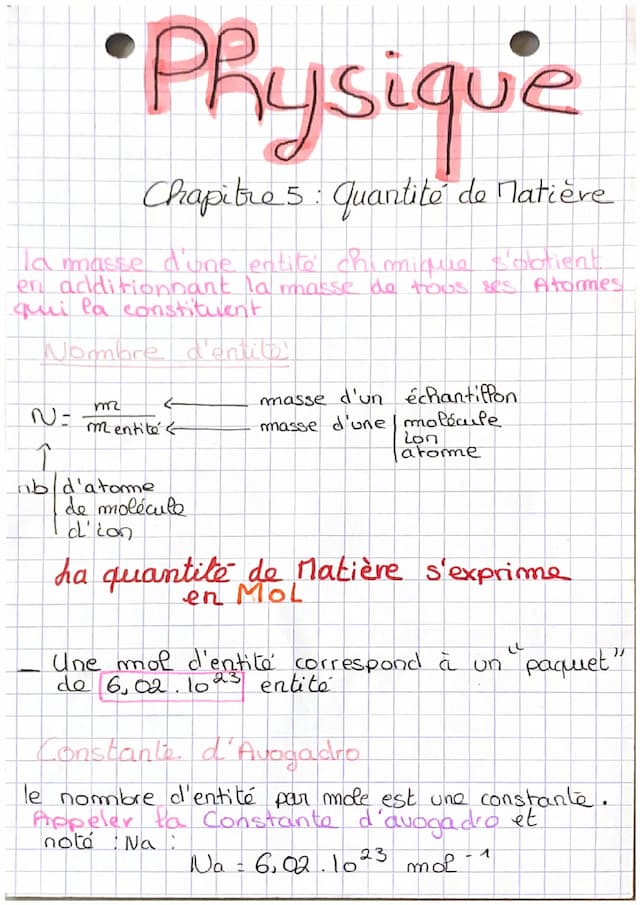 Physique
Chapitre 5 : Quantité de Matière
la masse d'une entité chimique s'obtient
en additionnant la masse de tous ses Atomes
qui la constituent
Nombre d'entité
N = m / m entité
masse d'un échantillon
masse d'une molécule
ion
atome
nb d'atome
de molécule
d'ion
La quantité de Matière s'exprime
en MOL
_ Une mol d'entité correspond à un "paquet"
de 6,02.10²³ entité
Constante d'Avogadro
le nombre d'entité par mole est une constante.
Appeler la Constante d'avogadro et
noté : Na :
Na = 6,02.10²³ mol⁻¹